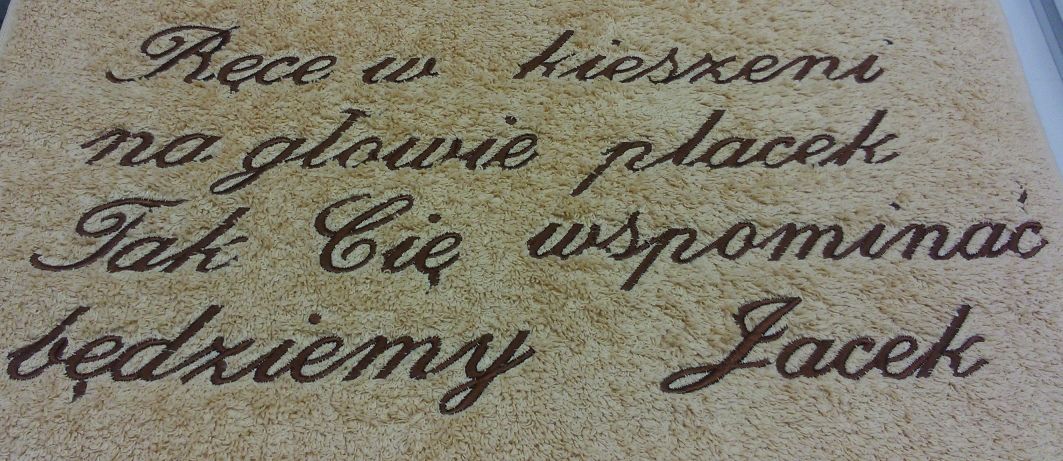 Ręce w kieszeni
na głowie placek
Tak Cię wspominać
będziemy Jacek